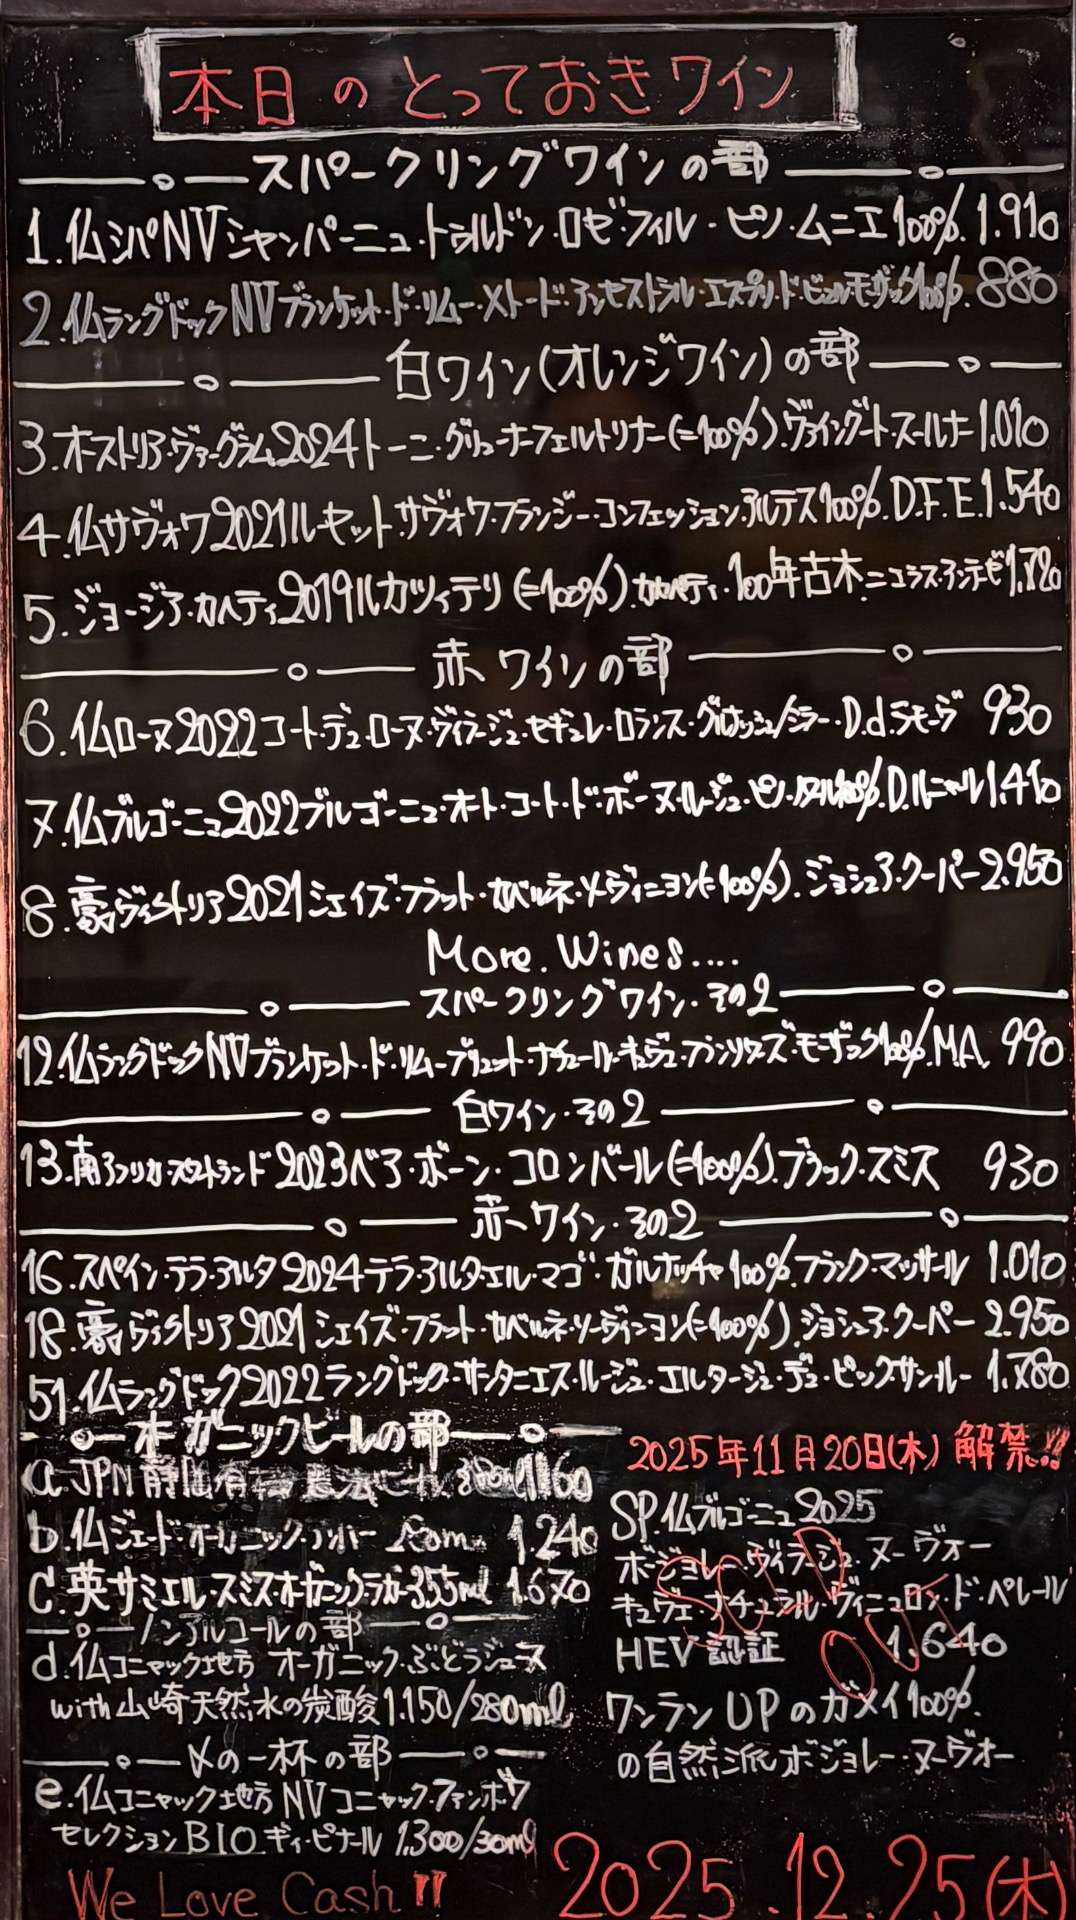 本日のとっておきワイン
スパークリングワインの部
1.仏シパNVシャンパーニュ・トゥルドン・ロゼ・フィル・ピノ・ムニエ100%.1.910
2.仏ラングドックNVブランケット・ド・リムー・メトード・アンセストラル・エスプリ・ド・ビュルモーザック100%.880
白ワイン(オレンジワイン)の部
3.オーストリア・ヴァーグラム2024トーニ・グリューナーフェルトリナー(=100%).ヴァイングート・スールナー1.010
4.仏サヴォワ2021ルーセット・サヴォワ・フランジー・コンフェッション.アルテス100%.D.F.E.1.540
5.ジョージア・カヘティ2019ルカツィテリ(=100%).カカベティ・100年古木.ニコラス・アンテゼ1.720
赤ワインの部
6.仏ローヌ2022コート・デュ・ローヌ・ヴィラージュ・セギュレ・ロランス・グルナッシュ/シラー・D.d.ラモーヴ 930
7.仏ブルゴーニュ2022ブルゴーニュ・オート・コート・ド・ボーヌ・ルージュ・ピノ・ノワール100%.D.ルニャール1.410
8.豪ヴィクトリア2021シェイズ・フラット・カベルネ・ソーヴィニヨン(=100%).ジョシュア・クーパー2.950
More.Wines....
スパークリングワイン・その2
12.仏ラングドックNVブランケット・ド・リムー・ブリュット・ナチュール・キュヴェ・フランソワーズ・モーザック100%.M.A. 990
白ワイン・その2
13.南アフリカ・スワートランド2023ベア・ボーン・コロンバール(=100%).ブラック・スミス 930
赤ワイン・その2
16.スペイン・テラ・アルタ2024テラ・アルタ・エル・マゴ・ガルナッチャ100%.フランク・マッサール 1.010
18.豪ヴィクトリア2021シェイズ・フラット・カベルネ・ソーヴィニヨン(=100%).ジョシュア・クーパー 2.950
51.仏ラングドック2022ラングドック・サンタニエス・ルージュ・エルタージュ・デュ・ピックサンルー 1.780
オーガニックビールの部
a.JPN 1160
b.仏ジェード・オーガニック・アンバー 1.240
C.英サミエル・スミス・オーガニックラガー355ml 1.670
ノンアルコールの部
d.仏コニャック地方 オーガニック・ぶどうジュース
with山崎天然水の炭酸1.150/280ml
〆の一杯の部
e.仏コニャック地方NVコニャック・ファンボワ
セレクションBIO ギィ・ピナール 1.300/30ml
We Love Cash!!
2025年11月20日(木)解禁!!
SP.仏ブルゴーニュ2025
ボジョレー・ヴィラージュ・ヌーヴォー
キュヴェ・ナチュラル・ヴィニュロン・ド・ペレール
HEV認証 1.640
SOLD OUT
ワンランUPのガメイ100%.
の自然派ボジョレー・ヌーヴォー
2025.12.25(木)